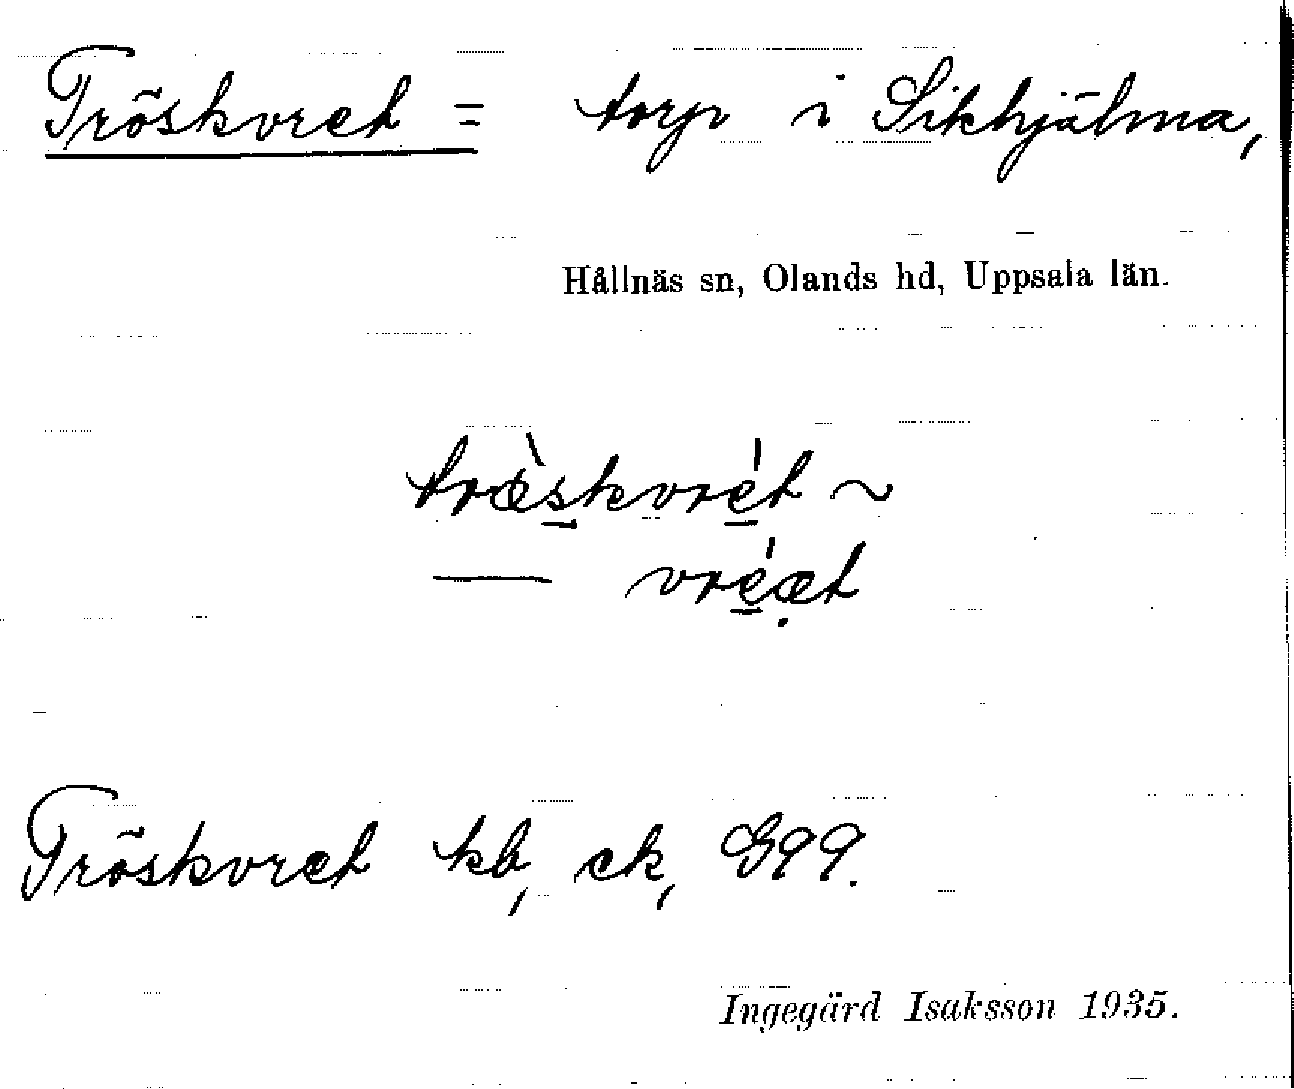 Tröskvret = torp i Sikhjälma,
Hållnäs sn, Olands hd, Uppsala län.
træ̀s̲kvre̲̍t ~
— vre̲̍æ̣t
Tröskvret kb, ek, G99.
Ingegärd Isaksson 1935.